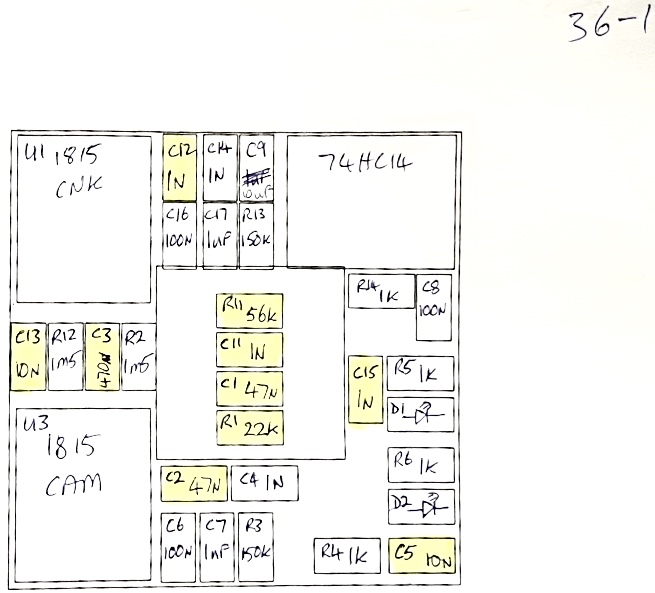 36-1
U1 1815
CNK
C12
1N
C14
1N
C9
10uF
74HC14
C16
100N
C17
1uF
R13
150K
R14 1K
C8
100N
R11 56K
C11 1N
C1 47N
R1 22K
C13
10N
R12
1M5
C3
470N
R2
1M5
C15
1N
R5 1K
D1
R6 1K
D2
U3
1815
CAM
C2 47N
C4 1N
C6
100N
C7
1uF
R3
150K
R4 1K
C5 10N